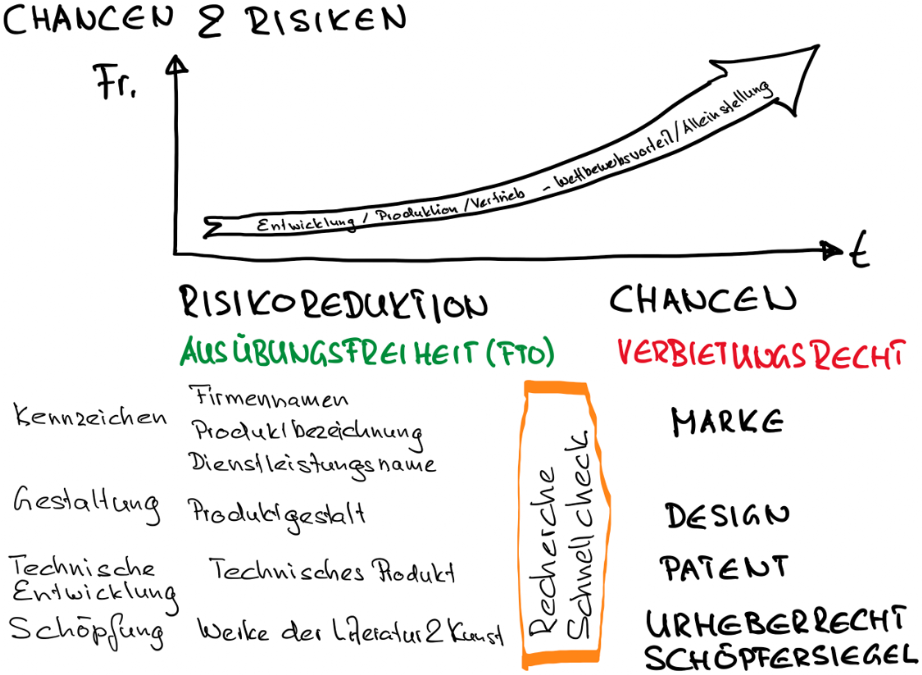 CHANCEN & RISIKEN
Fr.
Entwicklung / Produktion / Vertrieb - Wettbewerbsvorteil / Alleinstellung
t
RISIKOREDUKTION CHANCEN
AUSÜBUNGSFREIHEIT (FTO) VERBIETUNGSRECHT
Kennzeichen
Firmennamen
Produktbezeichnung
Dienstleistungsname
MARKE
Gestaltung Produktgestalt DESIGN
Technische
Entwicklung
Technisches Produkt PATENT
Schöpfung Werke der Literatur & Kunst
URHEBERRECHT
SCHÖPFERSIEGEL
Recherche
Schnellcheck